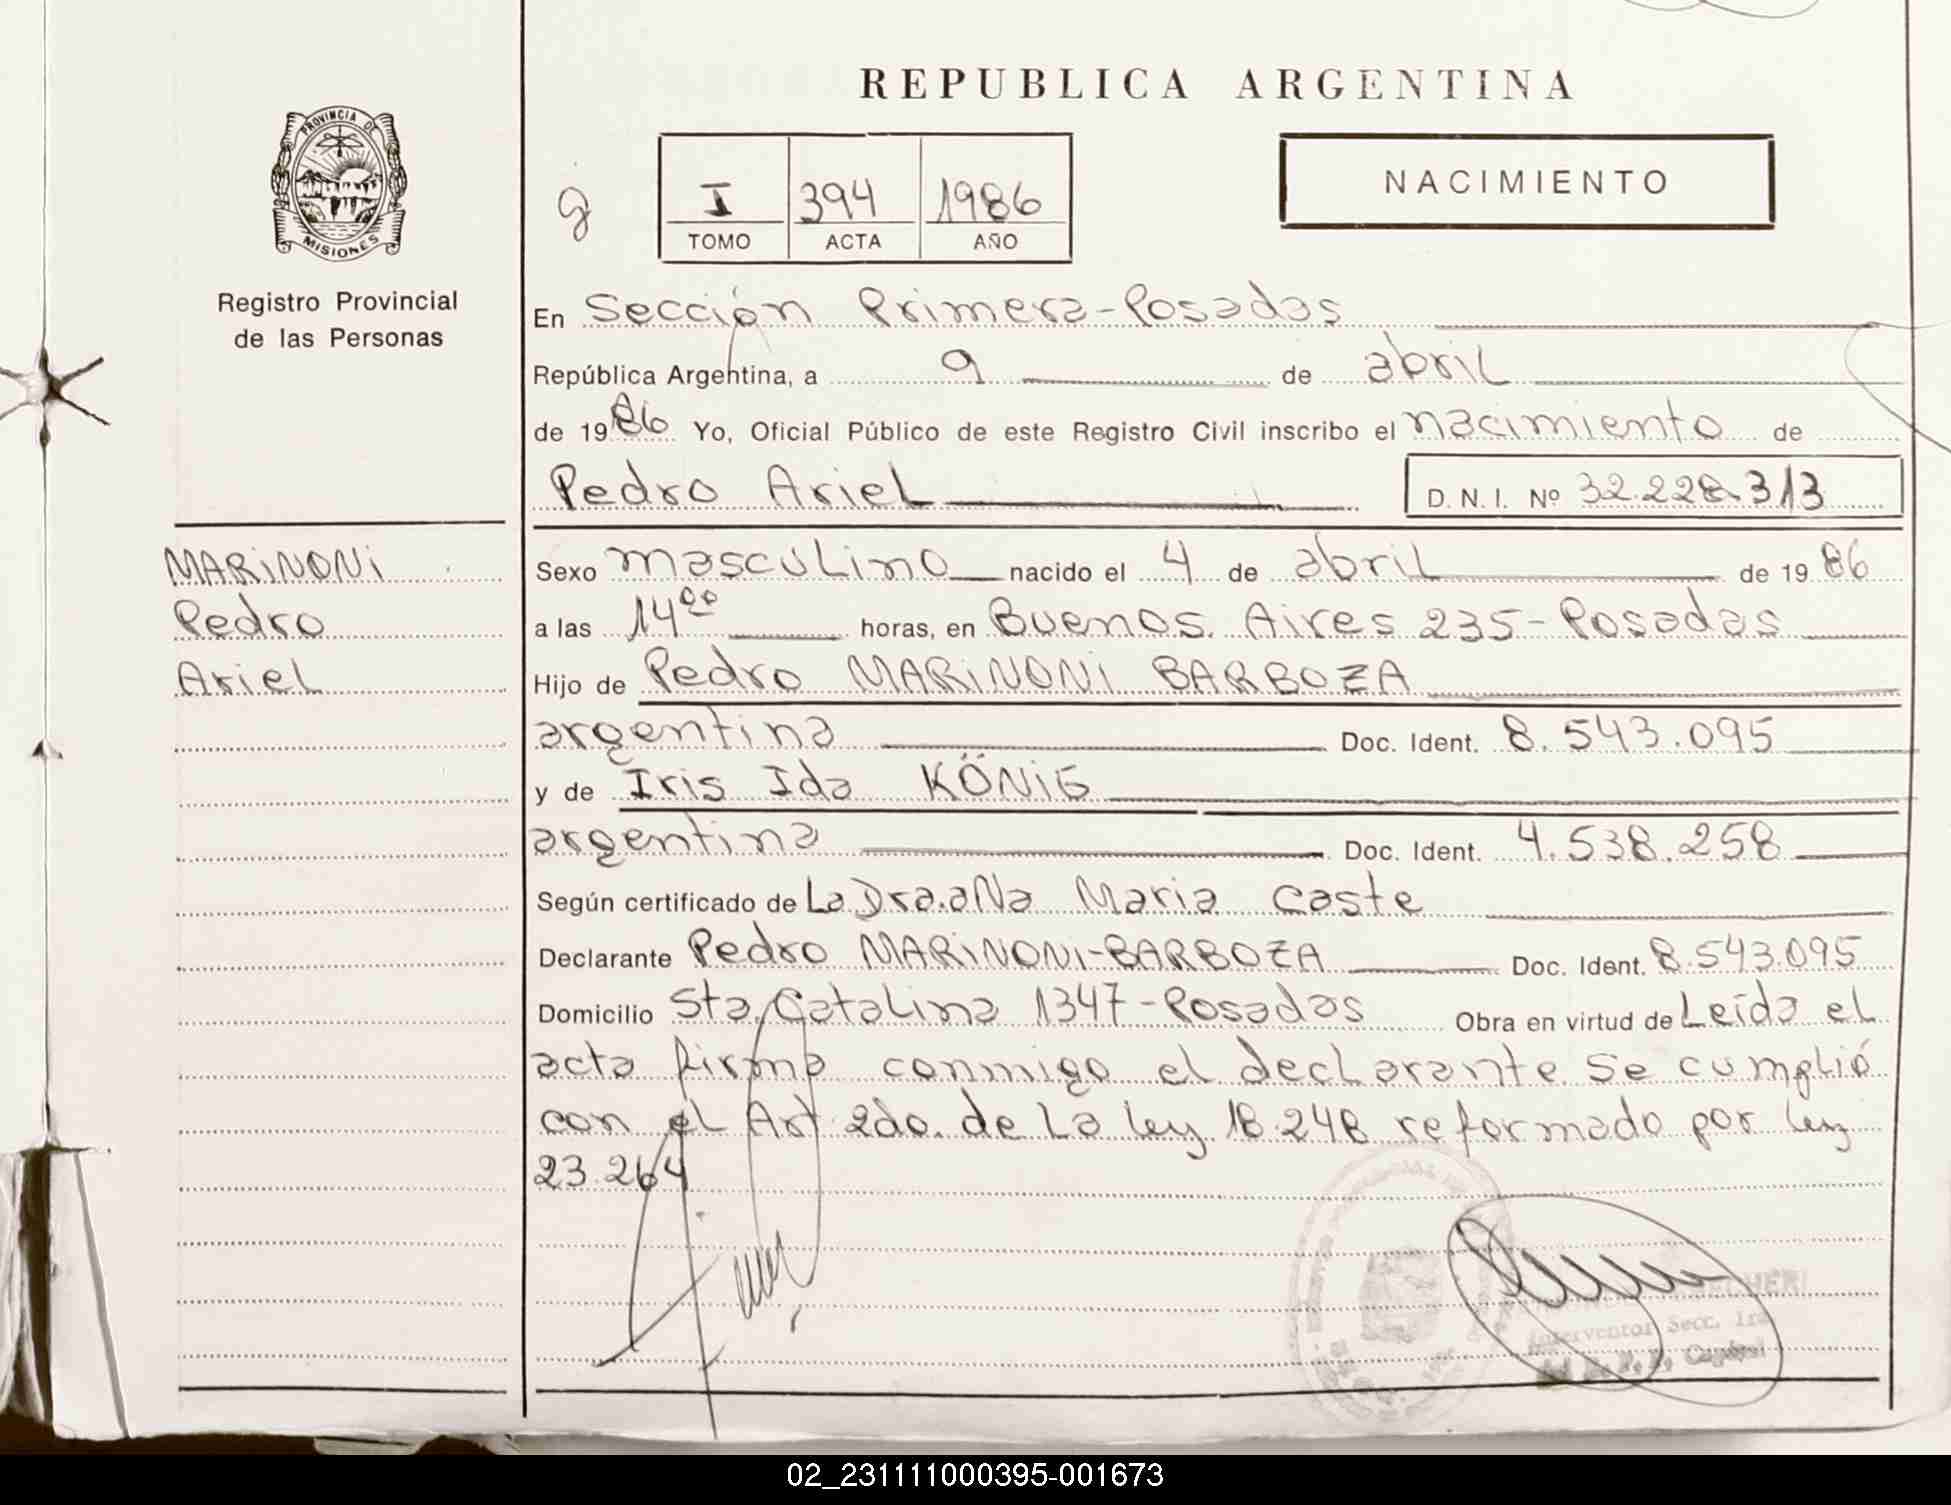 REPUBLICA ARGENTINA
PROVINCIA DE
MISIONES
Registro Provincial
de las Personas
I 394 1986
TOMO ACTA AÑO
NACIMIENTO
En Sección Primera-Posadas
República Argentina, a 9 de abril
de 1986 Yo, Oficial Público de este Registro Civil inscribo el nacimiento de
Pedro Ariel D. N. I. Nº 32.228.313
MARiNONi
Pedro
Ariel
Sexo masculino nacido el 4 de abril de 1986
a las 14⁰⁰ horas, en Buenos Aires 235-Posadas
Hijo de Pedro MARiNONi BARBOZA
argentina Doc. Ident. 8.543.095
y de Iris Ida KÖNiG
argentina Doc. Ident. 4.538.258
Según certificado de La Dra. aNa Maria Caste
Declarante Pedro MARiNONi-BARBOZA Doc. Ident. 8.543.095
Domicilio Sta. Catalina 1347-Posadas Obra en virtud de Leída el
acta firma conmigo el declarante. Se cumplió
con el Art 2do. de La Ley 18.248 reformado por ley
23.264
Interventor Secc. 1ra
02_231111000395-001673